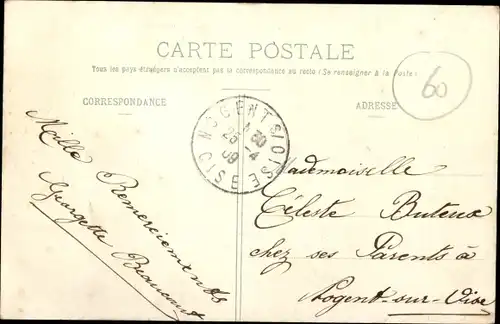 CARTE POSTALE
Tous les pays étrangers n'acceptent pas la correspondance au recto (Se renseigner à la Poste)
CORRESPONDANCE
ADRESSE
60
NOGENT S/OISE
30
25 -4
09
OISE
Mille Remerciements
Georgette Beaucant
Mademoiselle
Céleste Buteux
chez ses Parents à
Nogent-sur-Oise